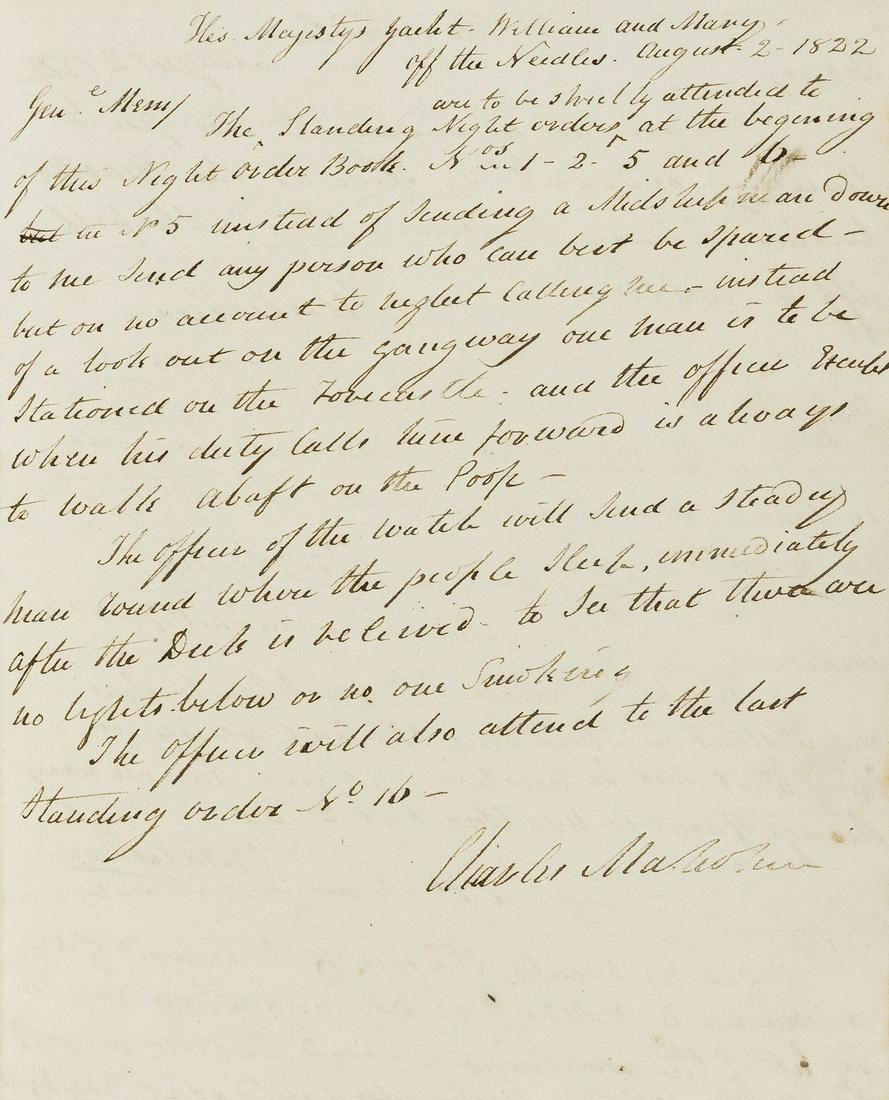 His Majestys Yacht William and Mary
off the Needles. August 2 - 1822
Gen.e Mem/
are to be strictly attended to
The Standing Night orders at the begening
of this Night order Book. Nos 1 - 2 - 5 and 6 -
but in No 5 instead of sending a Midshipman down
to me send any person who can best be Spared -
but on no account to neglect Calling me - instead
of a look out on the gangway one man is to be
Stationed on the Forecastle - and the officer Except
when his duty Calls him forward is always
to walk abaft on the Poop -
The officer of the watch will send a steady
man round where the people Sleep, immediately
after the Deck is relieved - to See that there are
no lights below or no one Smoking
The officer will also attend to the last
Standing order No 16 -
Charles Malcolm